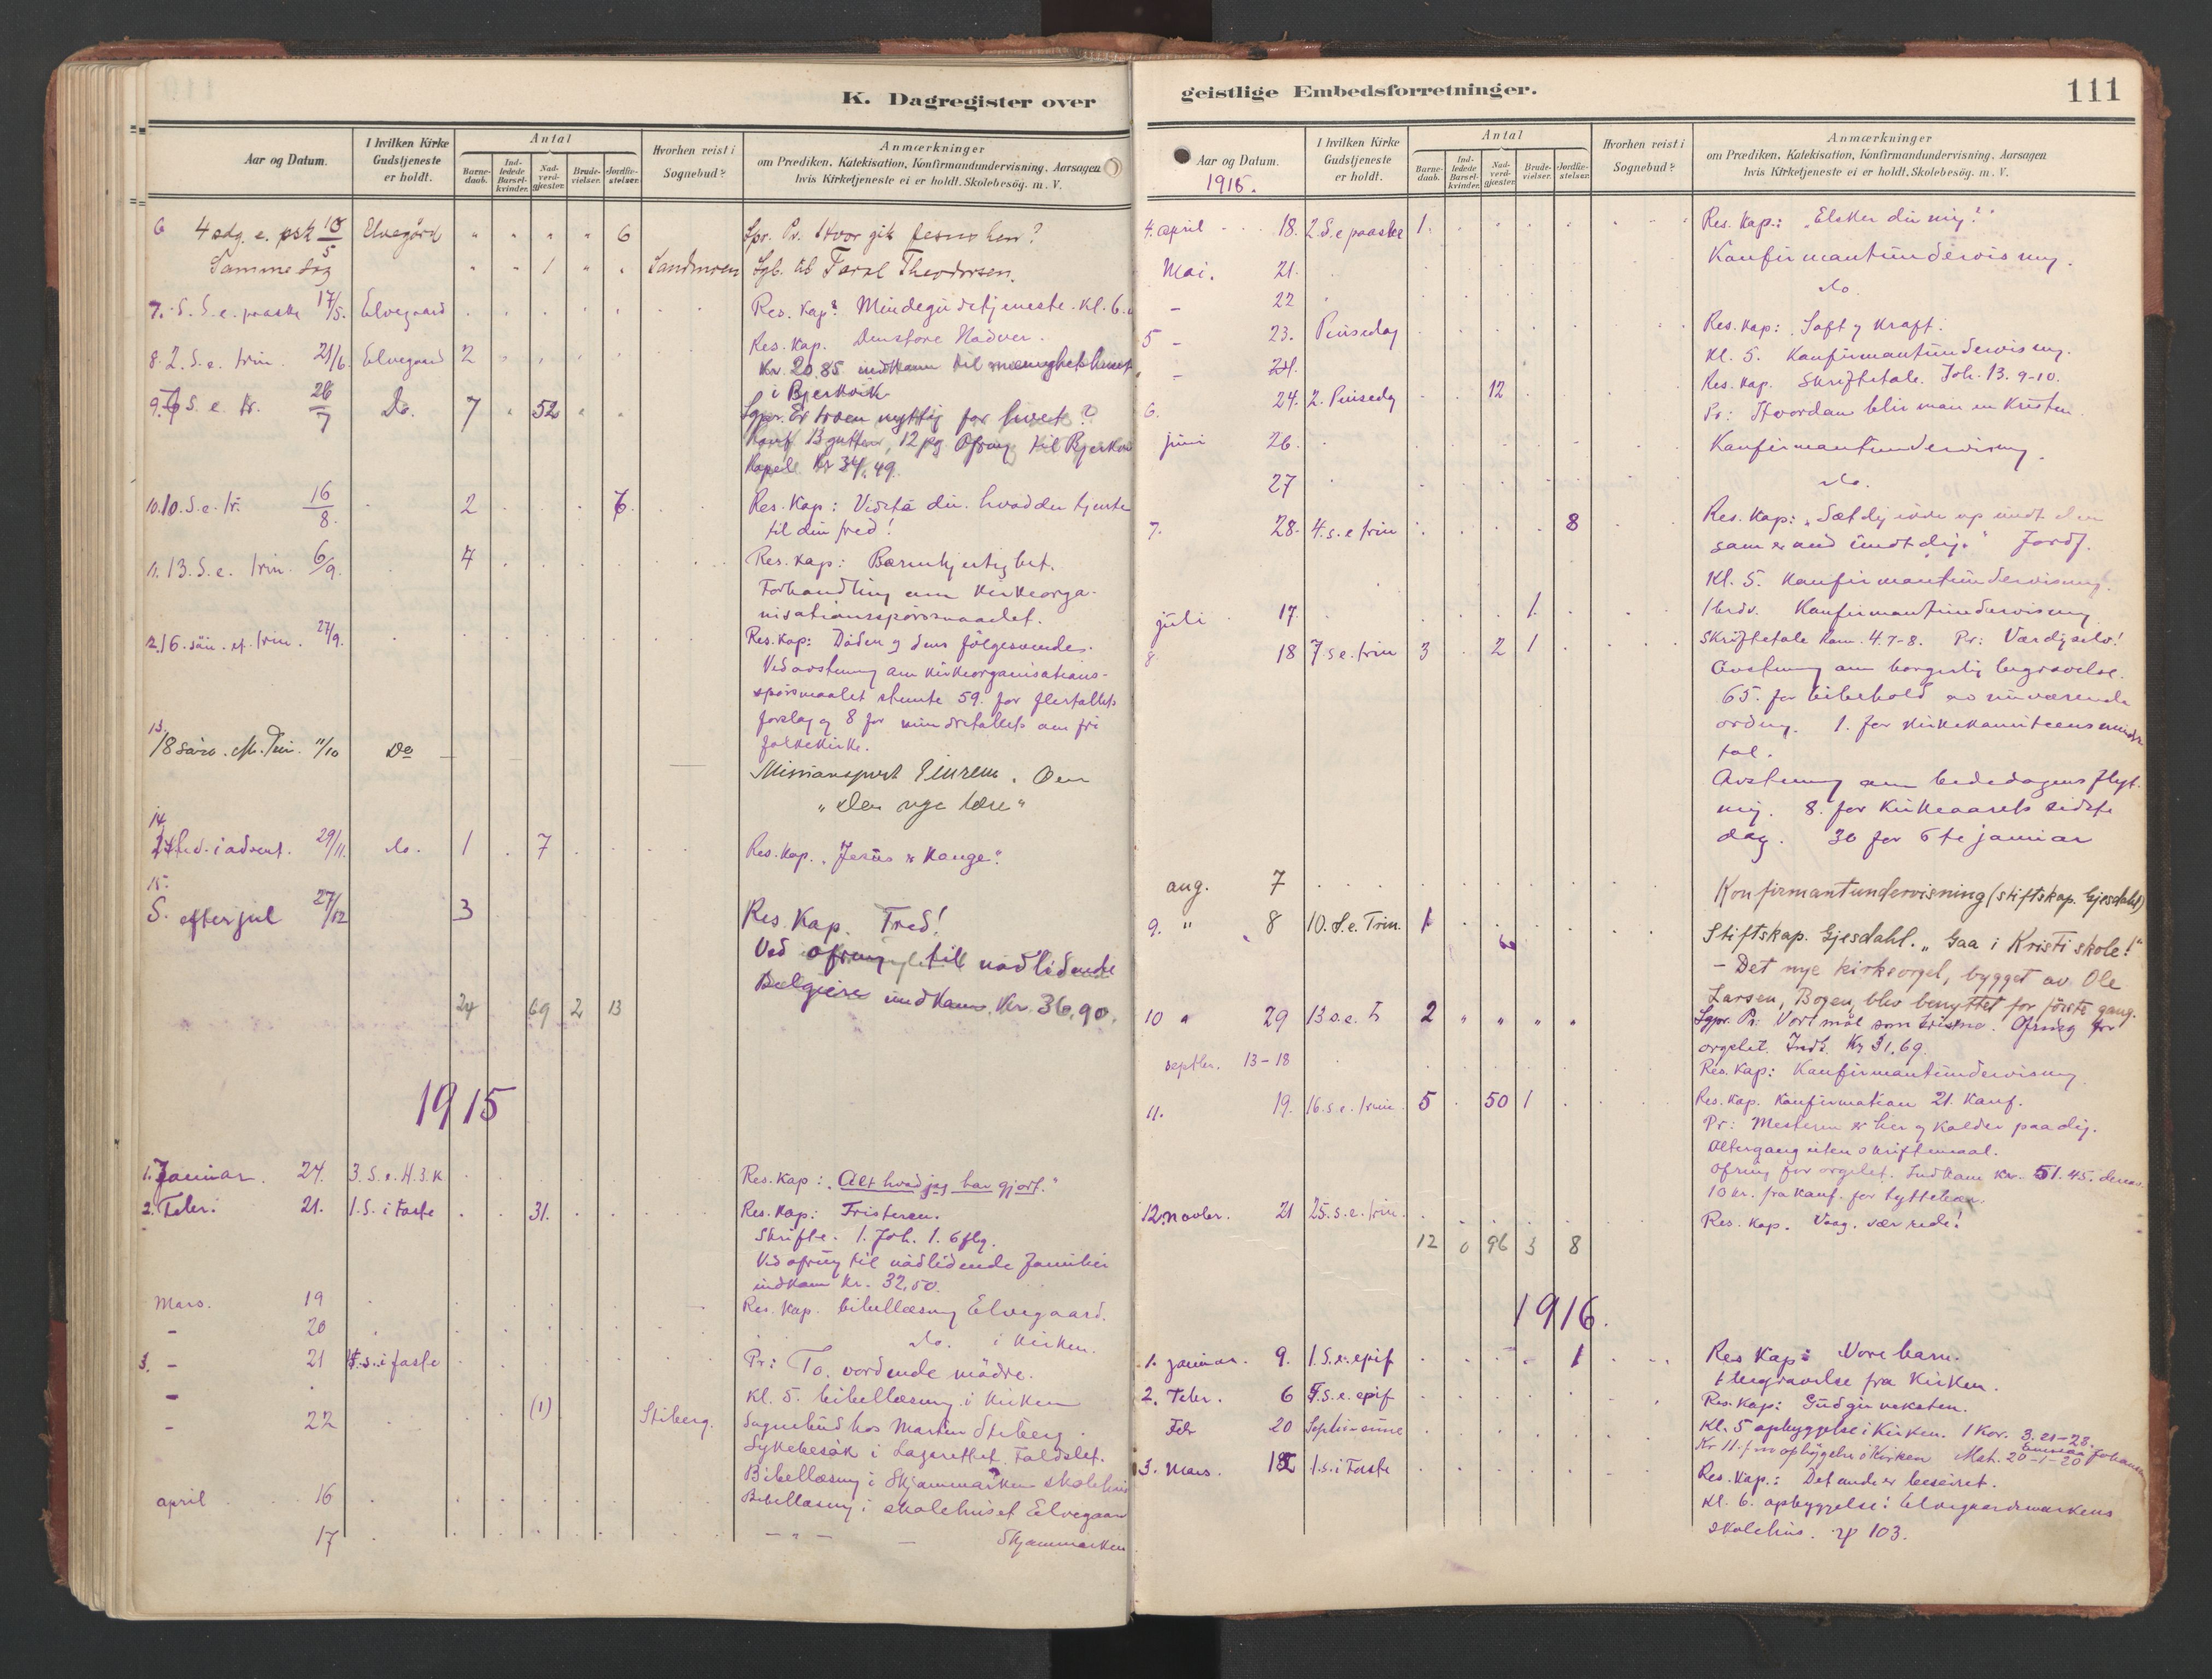 K. Dagregister over
Aar og Datum.
I hvilken Kirke Gudstjeneste er holdt.
Antal
Barne-daab.
Ind-ledede Barsel-kvinder.
Nad-verd-gjester.
Brude-vielser.
Jordfæ-stelser.
Hvorhen reist i Sognebud?
Anmærkninger
om Prædiken, Katekisation, Konfirmandundervisning, Aarsagen
hvis Kirketjeneste ei er holdt, Skolebesög. m. V.
6 4 sdg. e. psk 10/5 Elvegård " " " " 6 Spr. Pr. Hvor gik Jesus hen?
Samme dag " " 1 " " Sandmoen Sgb. til Theodorsen.
7. 5. S. e. paaske 17/5. Elvegaard Res. Kap: Mindegudstjeneste. Kl. 6.
8. 2. S. e. trin. 21/6. Elvegaard 2 Res. Kap. Den store Nadver.
Kr. 20.85 indkom til menighetshuset
i Bjerkvik
9. 7 S. e. tr. 26/7 Do. 7 " 52 " " Sgpr. Er troen nyttig for livet?
Konf. 13 gutter, 12 pg Ofring til Bjerkvik
Kapel Kr 34,49.
10. 10. S. e. tr. 16/8. 2 6 Res. Kap: Vidste du hvad der tjente
til din fred!
11. 13. S. e. trin. 6/9. 4 Res. Kap: Barmhjertighet.
Forhandling om kirkeorga-
nisationsspörsmaalet.
12. 16. sön. ef. trin. 27/9. Res. Kap: Döden og dens fölgesvende.
Ved avstemning om kirkeorganisations-
spörsmaalet stemte 59. for flertallets
forslag og 8 for mindretallets om fri
folkekirke.
13. 18 Sön. eft. Trin. 11/10 Do Missionsprest Einrem. Om
"den nye lære"
14. 1ste sed. i advent. 29/11. do. 1 7 Res. Kap. "Jesus er Konge".
15. S. efter jul 27/12 3 Res. Kap. Fred!
Ved ofring till nödlidende
Belgiere indkom Kr. 36,90.
24 69 2 13
1915
1. Januar. 24. 3. S. e. H. 3. K Res. Kap: "Alt hvad jeg har gjort."
2. Febr: 21. 1. S. i Faste 31. Res. Kap: Fristeren.
Skrifte. 1. Joh. 1. 6 flg.
Ved ofring til nödlidende familier
indkom Kr. 32,50.
Mars. 19 Res. Kap. bibellæsning Elvegaard.
- 20 do. i Kirken.
3. - 21 5. s. i faste Pr: To vordende mödre.
- Kl. 5. bibellæsning i Kirken
- 22 (1) Stiberg. Sognebud hos Martin Stiberg.
Sykebesök i Lazarettet, Faldslet.
Bibellæsning i Skjommarken skolehus
april 16 Bibellæsning i skolehuset Elvegaard
17 - " - - Skjommarken
geistlige Embedsforretninger.
111
Aar og Datum.
1915.
I hvilken Kirke Gudstjeneste er holdt.
Antal
Barne-daab.
Ind-ledede Barsel-kvinder.
Nad-verd-gjester.
Brude-vielser.
Jordfæ-stelser.
Hvorhen reist i Sognebud?
Anmærkninger
om Prædiken, Katekisation, Konfirmandundervisning, Aarsagen
hvis Kirketjeneste ei er holdt, Skolebesög. m. V.
4. april 18. 2. S. e paaske 1. Res. Kap.: "Elsker du mig?"
Mai. 21. Konfirmantundervisning.
- 22 do.
5 - 23. Pinsedag Res. Kap: Saft og Kraft.
- 24. Kl. 5. Konfirmantundervisning.
6. 24. 2. Pinsedag 12 Res. Kap. Skriftetale. Joh. 13. 9-10.
Pr: Hvordan blir man en Kristen.
juni 26. Konfirmantundervisning.
27 do.
7. 28. 4. s. e trin 8 Res. Kap: "Sæt dig ikke op imot den
som er ond imot dig." Jordf.
Kl. 5. Konfirmantundervisning.
juli 17. 1. 1 brdv. Konfirmantundervisning
8. 18 7. s. e. trin 3 2 1 Skriftetale Rom. 4. 7-8. Pr: Værdig selv!
Avstemning om borgerlig begravelse.
65. for bibehold av nuværende
ordning. 1. for kirkekomiteens mindre
tal.
Avstemning om bededagens flyt-
ning. 8. for Kirkeaarets sidste
dag. 30 for 6te januar
aug. 7 Konfirmantundervisning (stiftskap. Gjesdahl)
9. " 8 10. S. e. Trin. 1 Stiftskap. Gjesdahl. "Gaa i Kristi skole!"
- Det nye kirkeorgel, bygget av Ole
Larsen, Bogen, blev benyttet for förste gang.
10 " 29 13 s. e. Tr 2 " " " " Sgpr. Pr: Vort mål som kristne. Ofring for
orgelet. Indk. Kr 31,69.
septbr. 13-18 Res. Kap: Konfirmantundervisning
11. 19. 16. s. e. trin. 5 50 1 Res. Kap. Konfirmation 21. Konf.
Pr: Mesteren er her og kalder paa dig.
Altergang uten skriftemaal.
Ofring for orgelet. Indkom Kr. 51.45. derav
10 kr. fra konf. for
12. novbr. 21 25. s. e. trin. Res. Kap. Vaag. vær rede!
12 0 96 3 8
1916.
1. januar. 9. 1. S. e. epif 1 Res Kap: Vore barn.
1 begravelse fra Kirken.
2. Febr. 6 5. S. e. epif Res. Kap: Gud gir veksten.
Feb 20 Kl. 5 opbyggelse i Kirken. 1 Kor. 3. 21-23.
Kr 11. opbyggelse i Kirken Mat. 20-1-20 Johansen
3. Mars. 12 1. s. i Faste Res. Kap.: Det onde er beseiret.
Kl. 6. opbyggelse i Elvegaardsmarkens
skolehus. 103.